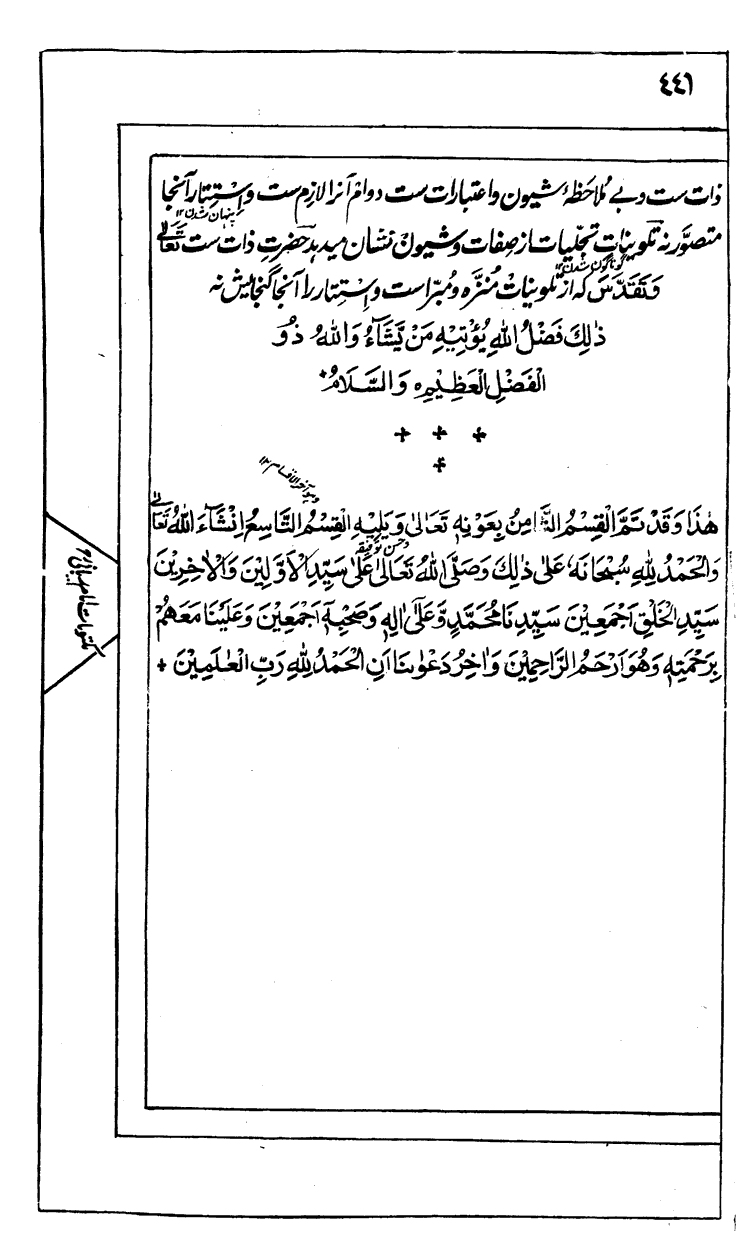 ٤٤١
ذات ست و بے ملاحظهٔ شیون و اعتبارات ست دوام آنرا لازم ست و اِسْتِتار آنجا
پنهان شدن ۱۲
متصوَّر نه تلوینات تجلیات از صفات و شیون نشان میدهد حضرتِ ذات ست تَعَالٰی
گوناگون شدن ۱۲
وَتَقَدَّسَ که از تلوینات مُنَزَّه و مُبرّا است و اِسْتِتار را آنجا گنجایش نه
ذٰلِكَ فَضْلُ اللهِ يُؤْتِيْهِ مَنْ يَّشَآءُ وَاللهُ ذُو
الْفَضْلِ الْعَظِيْمِ ه وَالسَّلَامُ
هٰذَا وَقَدْ تَمَّ الْقِسْمُ الثَّامِنُ بِعَوْنِهٖ تَعَالٰى وَيَلِيْهِ الْقِسْمُ التَّاسِعُ اِنْشَآءَ اللّٰهُ تَعَالٰى
وحسن توفيقه
وَالْحَمْدُ لِلّٰهِ سُبْحَانَهٗ عَلٰى ذٰلِكَ وَصَلَّى اللّٰهُ تَعَالٰى عَلٰى سَيِّدِ الْاَوَّلِيْنَ وَالْاٰخِرِيْنَ
سَيِّدِ الْخَلْقِ اَجْمَعِيْنَ سَيِّدِنَا مُحَمَّدٍ وَّعَلٰٓى اٰلِهٖ وَصَحْبِهٖٓ اَجْمَعِيْنَ وَعَلَيْنَا مَعَهُمْ
بِرَحْمَتِهٖ وَهُوَ اَرْحَمُ الرَّاحِمِيْنَ وَاٰخِرُ دَعْوٰىنَا اَنِ الْحَمْدُ لِلّٰهِ رَبِّ الْعٰلَمِيْنَ
مکتوبات امام ربانی رح